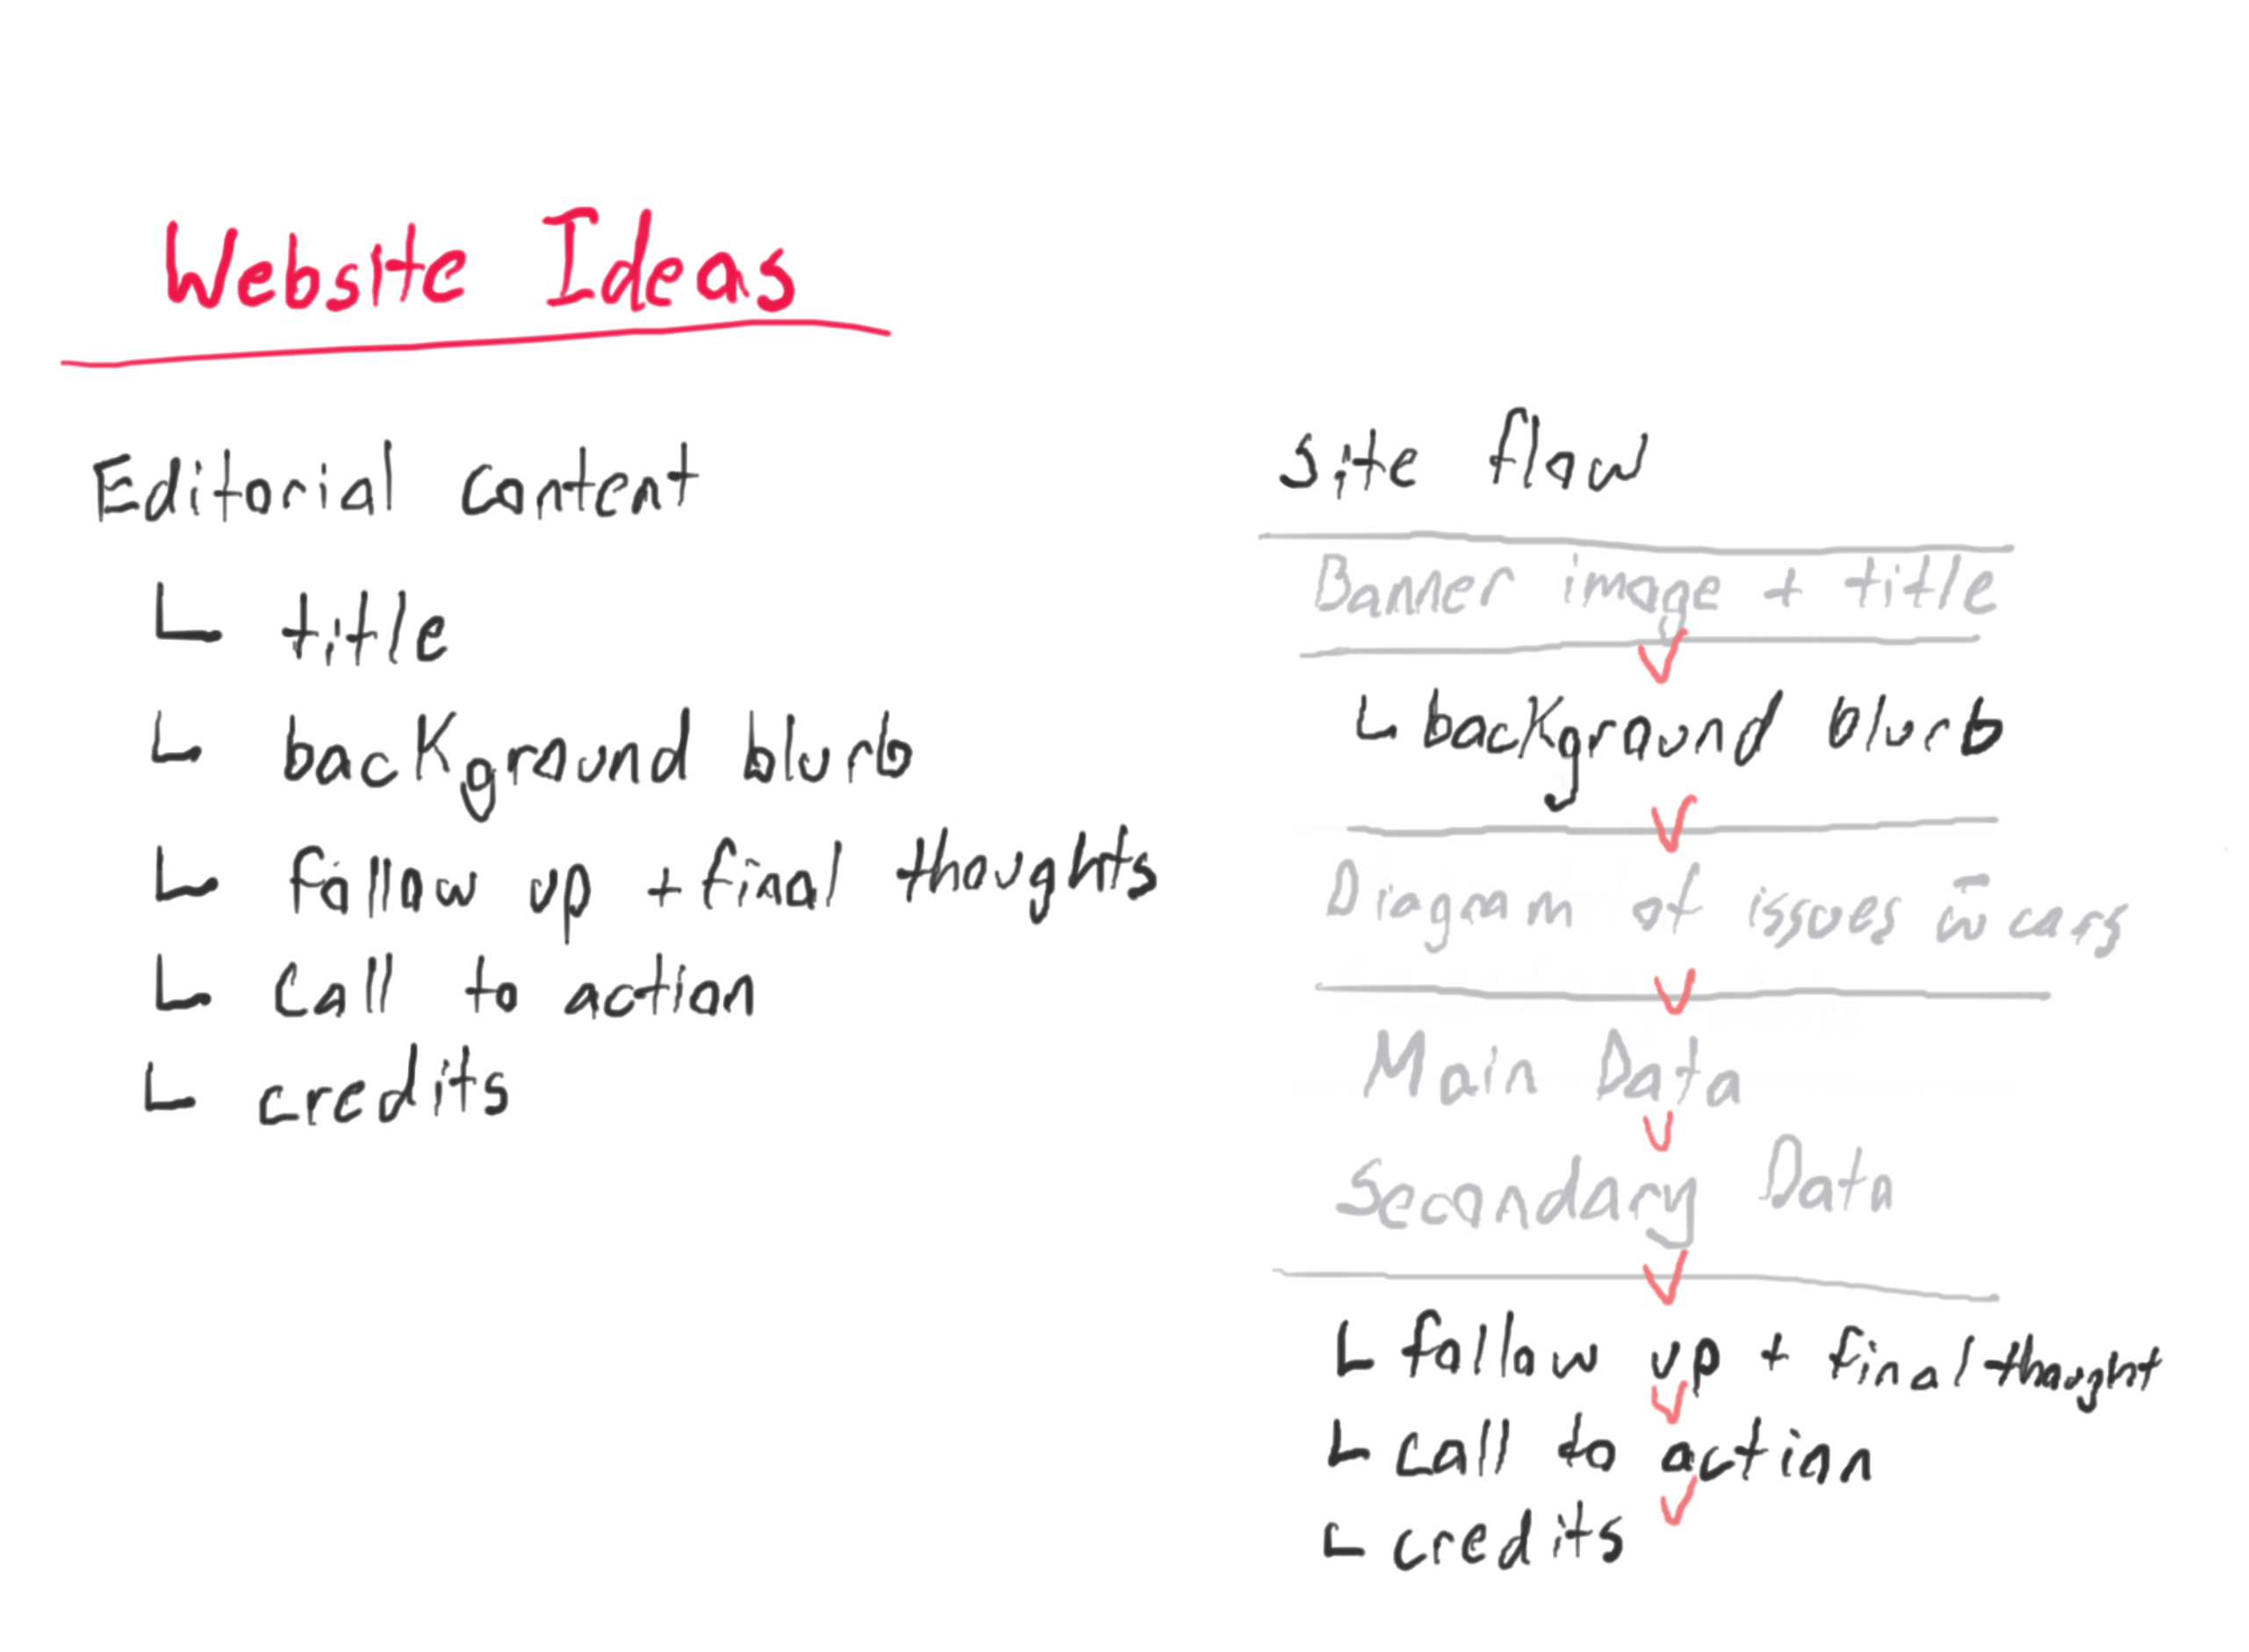 Website Ideas
Editorial content
title
background blurb
follow up + final thoughts
call to action
credits
site flow
Banner image + title
background blurb
Diagram of issues w̄ cars
Main Data
Secondary Data
follow up + final thought
call to action
credits